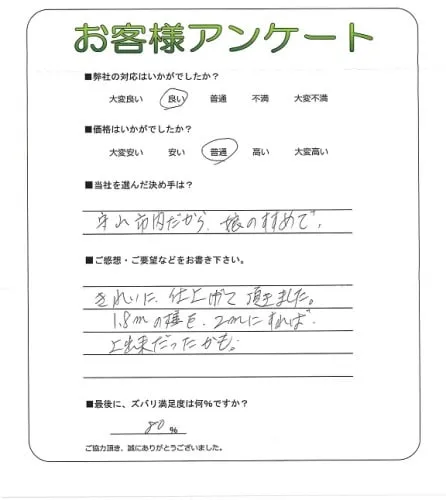 お客様アンケート
■弊社の対応はいかがでしたか?
大変良い 良い 普通 不満 大変不満
■価格はいかがでしたか?
大変安い 安い 普通 高い 大変高い
■当社を選んだ決め手は?
守山市内だから、娘のすすめで、
■ご感想・ご要望などをお書き下さい。
きれいに仕上げて頂きました。
1.8mの塀を、2mにすれば、
上出来だったかも。
■最後に、ズバリ満足度は何%ですか?
80 %
ご協力頂き、誠にありがとうございました。